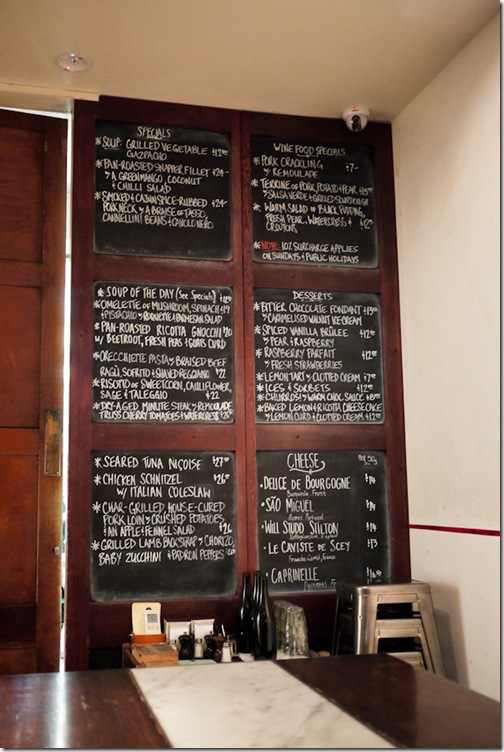 SPECIALS
* SOUP: GRILLED VEGETABLE $12.00
GAZPACHO
* PAN-ROASTED SNAPPER FILLET $24-
Y A GREEN MANGO, COCONUT
& CHILLI SALAD
* SMOKED & CAJUN SPICE-RUBBED $24-
PORK NECK Y A BRAISE OF TASSO,
CANNELLINI BEANS & CAVOLO NERO
WINE FOOD SPECIALS
* PORK CRACKLING $7-
Y REMOULADE
* TERRINE OF PORK, POTATO & PEAR
Y SALSA VERDE & GRILLED SOURDOUGH
* WARM SALAD OF BLACK PUDDING,
FRESH PEAR, WATERCRESS &
CROUTONS
NOTE: 10% SURCHARGE APPLIES
ON SUNDAYS & PUBLIC HOLIDAYS
* SOUP OF THE DAY (See Specials) $12.00
* OMELETTE OF MUSHROOM, SPINACH $19
& PISTACHIO Y ROQUETTE & PARMESAN SALAD
* PAN-ROASTED RICOTTA GNOCCHI $20
W/ BEETROOT, FRESH PEAS & GOATS CURD
ORECCHIETTE PASTA Y BRAISED BEEF
RAGÙ, SOFRITO & SHAVED REGGIANO $22
* RISOTTO OF SWEETCORN, CAULIFLOWER,
SAGE & TALEGGIO $22
* DRY-AGED MINUTE STEAK Y REMOULADE
TRUSS CHERRY TOMATOES & WATERCRESS
DESSERTS
* BITTER CHOCOLATE FONDANT
Y CARAMELISED WALNUT ICE-CREAM
* SPICED VANILLA BRÛLEE $12.00
Y PEAR & RASPBERRY
* RASPBERRY PARFAIT $12.00
Y FRESH STRAWBERRIES
* LEMON TART Y CLOTTED CREAM
* ICES & SORBETS $12.00
* CHURROS! Y WARM CHOC SAUCE
* BAKED LEMON & RICOTTA CHEESECAKE
Y LEMON CURD & CLOTTED CREAM $12.00
* SEARED TUNA NIÇOISE $27.00
* CHICKEN SCHNITZEL $26
W/ ITALIAN COLESLAW
* CHAR-GRILLED, HOUSE-CURED
PORK LOIN Y CRUSHED POTATOES,
AN APPLE & FENNEL SALAD $26
* GRILLED LAMB BACKSTRAP Y CHORIZO,
BABY ZUCCHINI & PADRON PEPPERS
CHEESE
• DELICE DE BOURGOGNE $14
Burgundy, France
• SÃO MIGUEL $14
Azores, Portugal
• WILL STUDD STILTON $14
Nottinghamshire, England
• LE CAVISTE DE SCEY $13
Franche-Comté, France
• CAPRINELLE